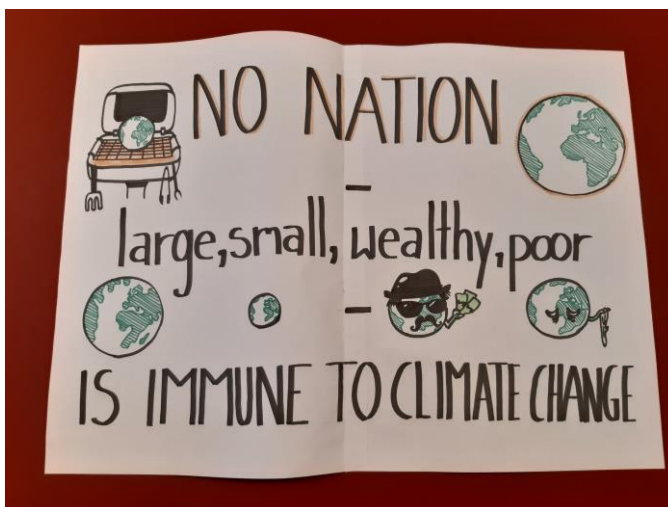 NO NATION
–
large, small, wealthy, poor
–
IS IMMUNE TO CLIMATE CHANGE